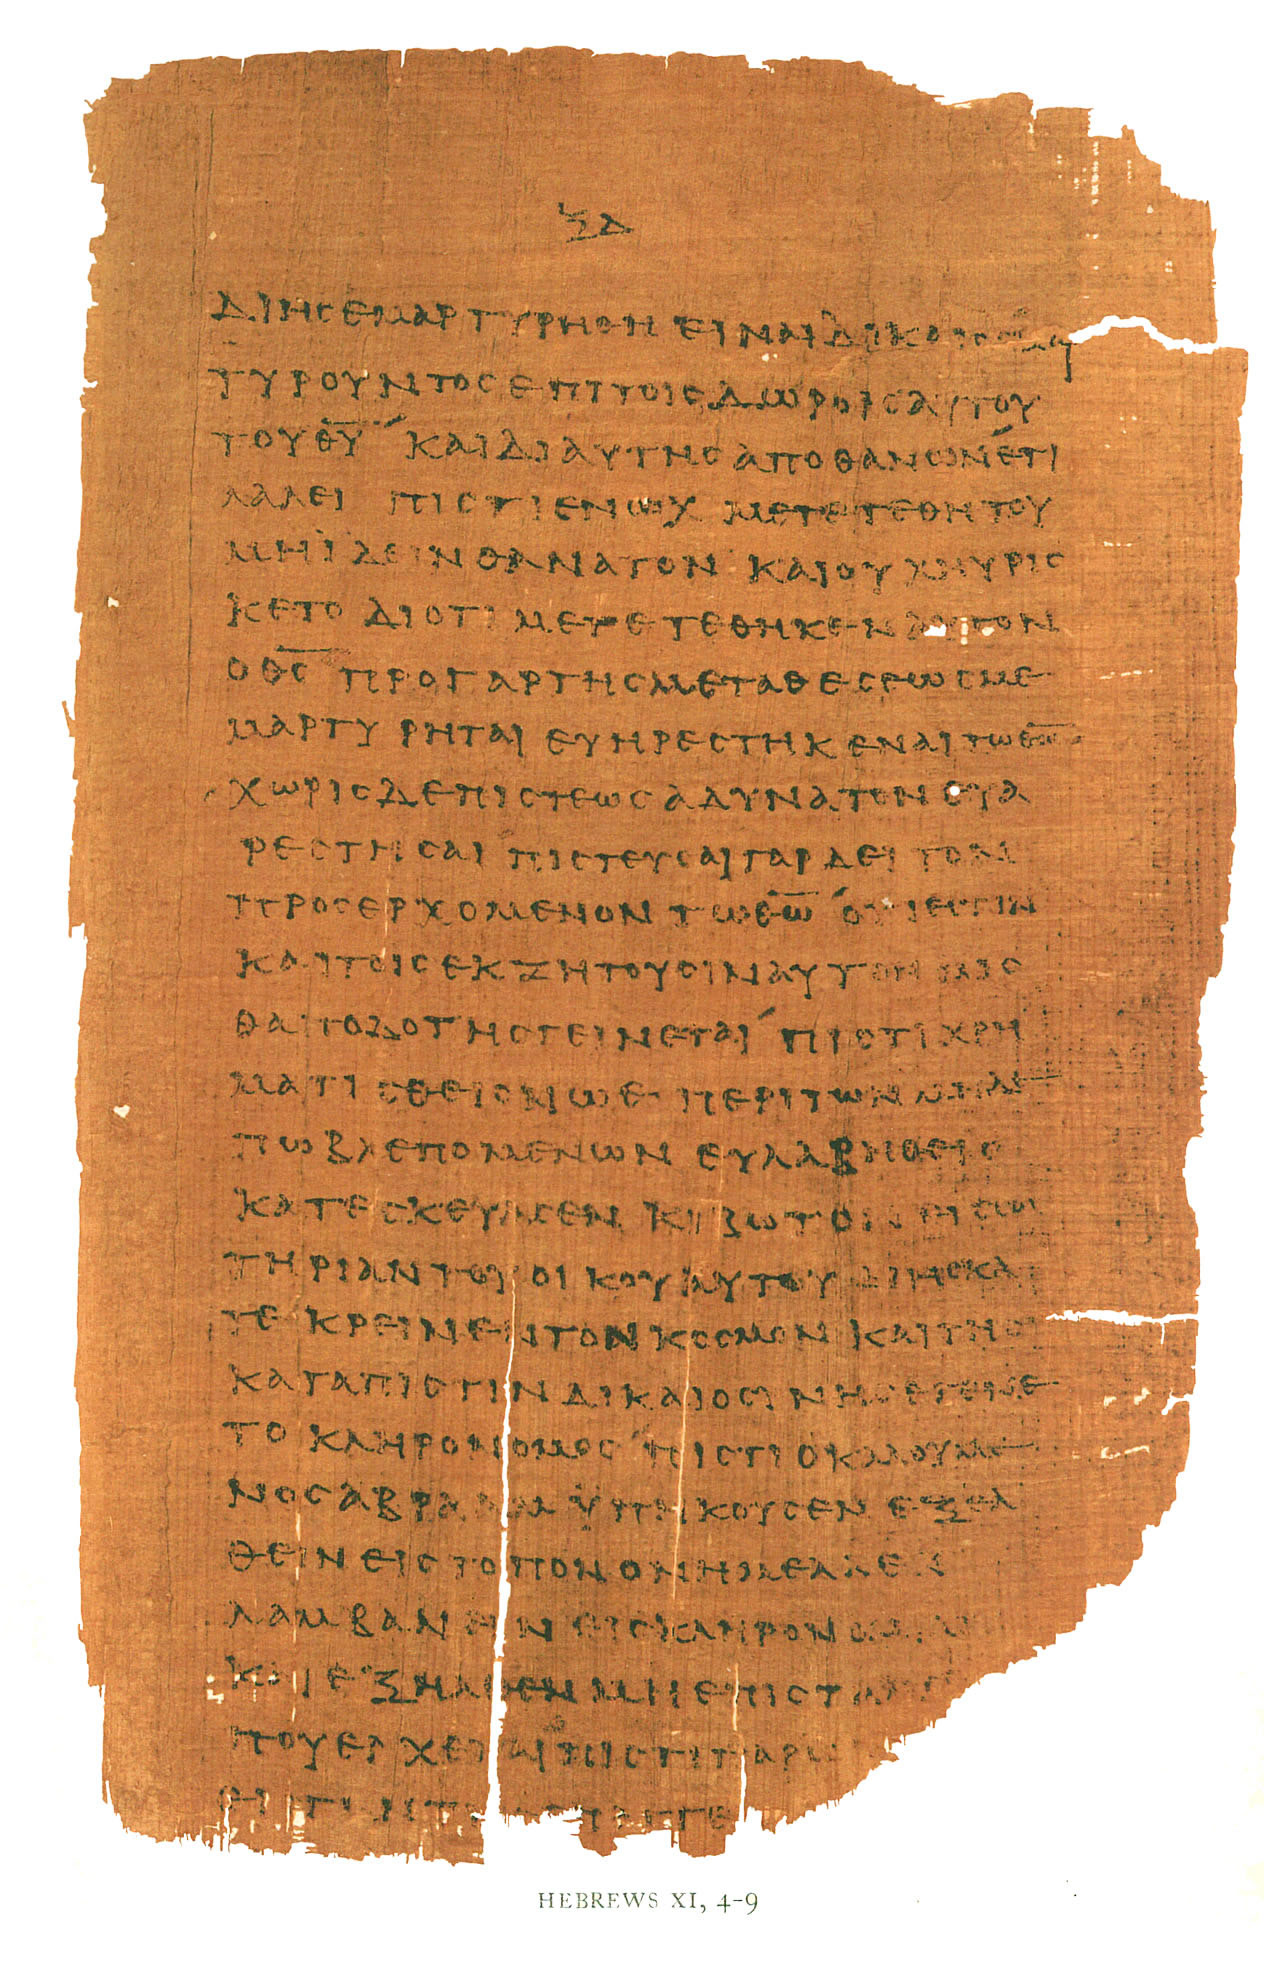 ΞΔ
ΔΙΗϹΕΜΑΡΤΥΡΗΘΗ ΕΙΝΑΙ ΔΙΚΑΙΟϹ ΜΑΡ
ΤΥΡΟΥΝΤΟϹ ΕΠΙ ΤΟΙϹ ΔΩΡΟΙϹ ΑΥΤΟΥ
ΤΟΥ Θ̅Υ̅ ΚΑΙ ΔΙ ΑΥΤΗϹ ΑΠΟΘΑΝΩΝ ΕΤΙ
ΛΑΛΕΙ ΠΙϹΤΙ ΕΝΩΧ ΜΕΤΕΤΕΘΗ ΤΟΥ
ΜΗ ΙΔΕΙΝ ΘΑΝΑΤΟΝ ΚΑΙ ΟΥΧ ΗΥΡΙϹ
ΚΕΤΟ ΔΙΟΤΙ ΜΕΤΕΤΕΘΗΚΕΝ ΑΥΤΟΝ
Ο Θ̅Ϲ̅ ΠΡΟ ΓΑΡ ΤΗϹ ΜΕΤΑΘΕϹΕΩϹ ΜΕ
ΜΑΡΤΥΡΗΤΑΙ ΕΥΗΡΕϹΤΗΚΕΝΑΙ ΤΩ Θ̅Ω̅
ΧΩΡΙϹ ΔΕ ΠΙϹΤΕΩϹ ΑΔΥΝΑΤΟΝ ΕΥΑ
ΡΕϹΤΗϹΑΙ ΠΙϹΤΕΥϹΑΙ ΓΑΡ ΔΕΙ ΤΟΝ
ΠΡΟϹΕΡΧΟΜΕΝΟΝ ΤΩ Θ̅Ω̅ ΟΤΙ ΕϹΤΙΝ
ΚΑΙ ΤΟΙϹ ΕΚΖΗΤΟΥϹΙΝ ΑΥΤΟΝ ΜΙϹ
ΘΑΠΟΔΟΤΗϹ ΓΕΙΝΕΤΑΙ ΠΙϹΤΙ ΧΡΗ
ΜΑΤΙϹΘΕΙϹ ΝΩΕ ΠΕΡΙ ΤΩΝ ΜΗΔΕ
ΠΩ ΒΛΕΠΟΜΕΝΩΝ ΕΥΛΑΒΗΘΕΙϹ
ΚΑΤΕϹΚΕΥΑϹΕΝ ΚΙΒΩΤΟΝ ΕΙϹ ϹΩ
ΤΗΡΙΑΝ ΤΟΥ ΟΙΚΟΥ ΑΥΤΟΥ ΔΙ ΗϹ ΚΑ
ΤΕΚΡΕΙΝΕΝ ΤΟΝ ΚΟϹΜΟΝ ΚΑΙ ΤΗϹ
ΚΑΤΑ ΠΙϹΤΙΝ ΔΙΚΑΙΟϹΙΝΗϹ ΕΓΕΝΕ
ΤΟ ΚΛΗΡΟΝΟΜΟϹ ΠΙϹΤΙ Ο ΚΑΛΟΥΜΕ
ΝΟϹ ΑΒΡΑΑΜ ΫΠΗΚΟΥϹΕΝ ΕΞΕΛ
ΘΕΙΝ ΕΙϹ ΤΟΠΟΝ ΟΝ ΗΜΕΛΛΕΝ
ΛΑΜΒΑΝΗΝ ΕΙϹ ΚΛΗΡΟΝΟΜΙΑΝ
ΚΑΙ ΕΞΗΛΘΕΝ ΜΗ ΕΠΙϹΤΑΜΕ
ΠΟΥ ΕΡΧΕΤΑΙ ΠΙϹΤΙ ΠΑΡΩ
ΓΗ ΕΠΑΓΓΕ
HEBREWS XI, 4-9